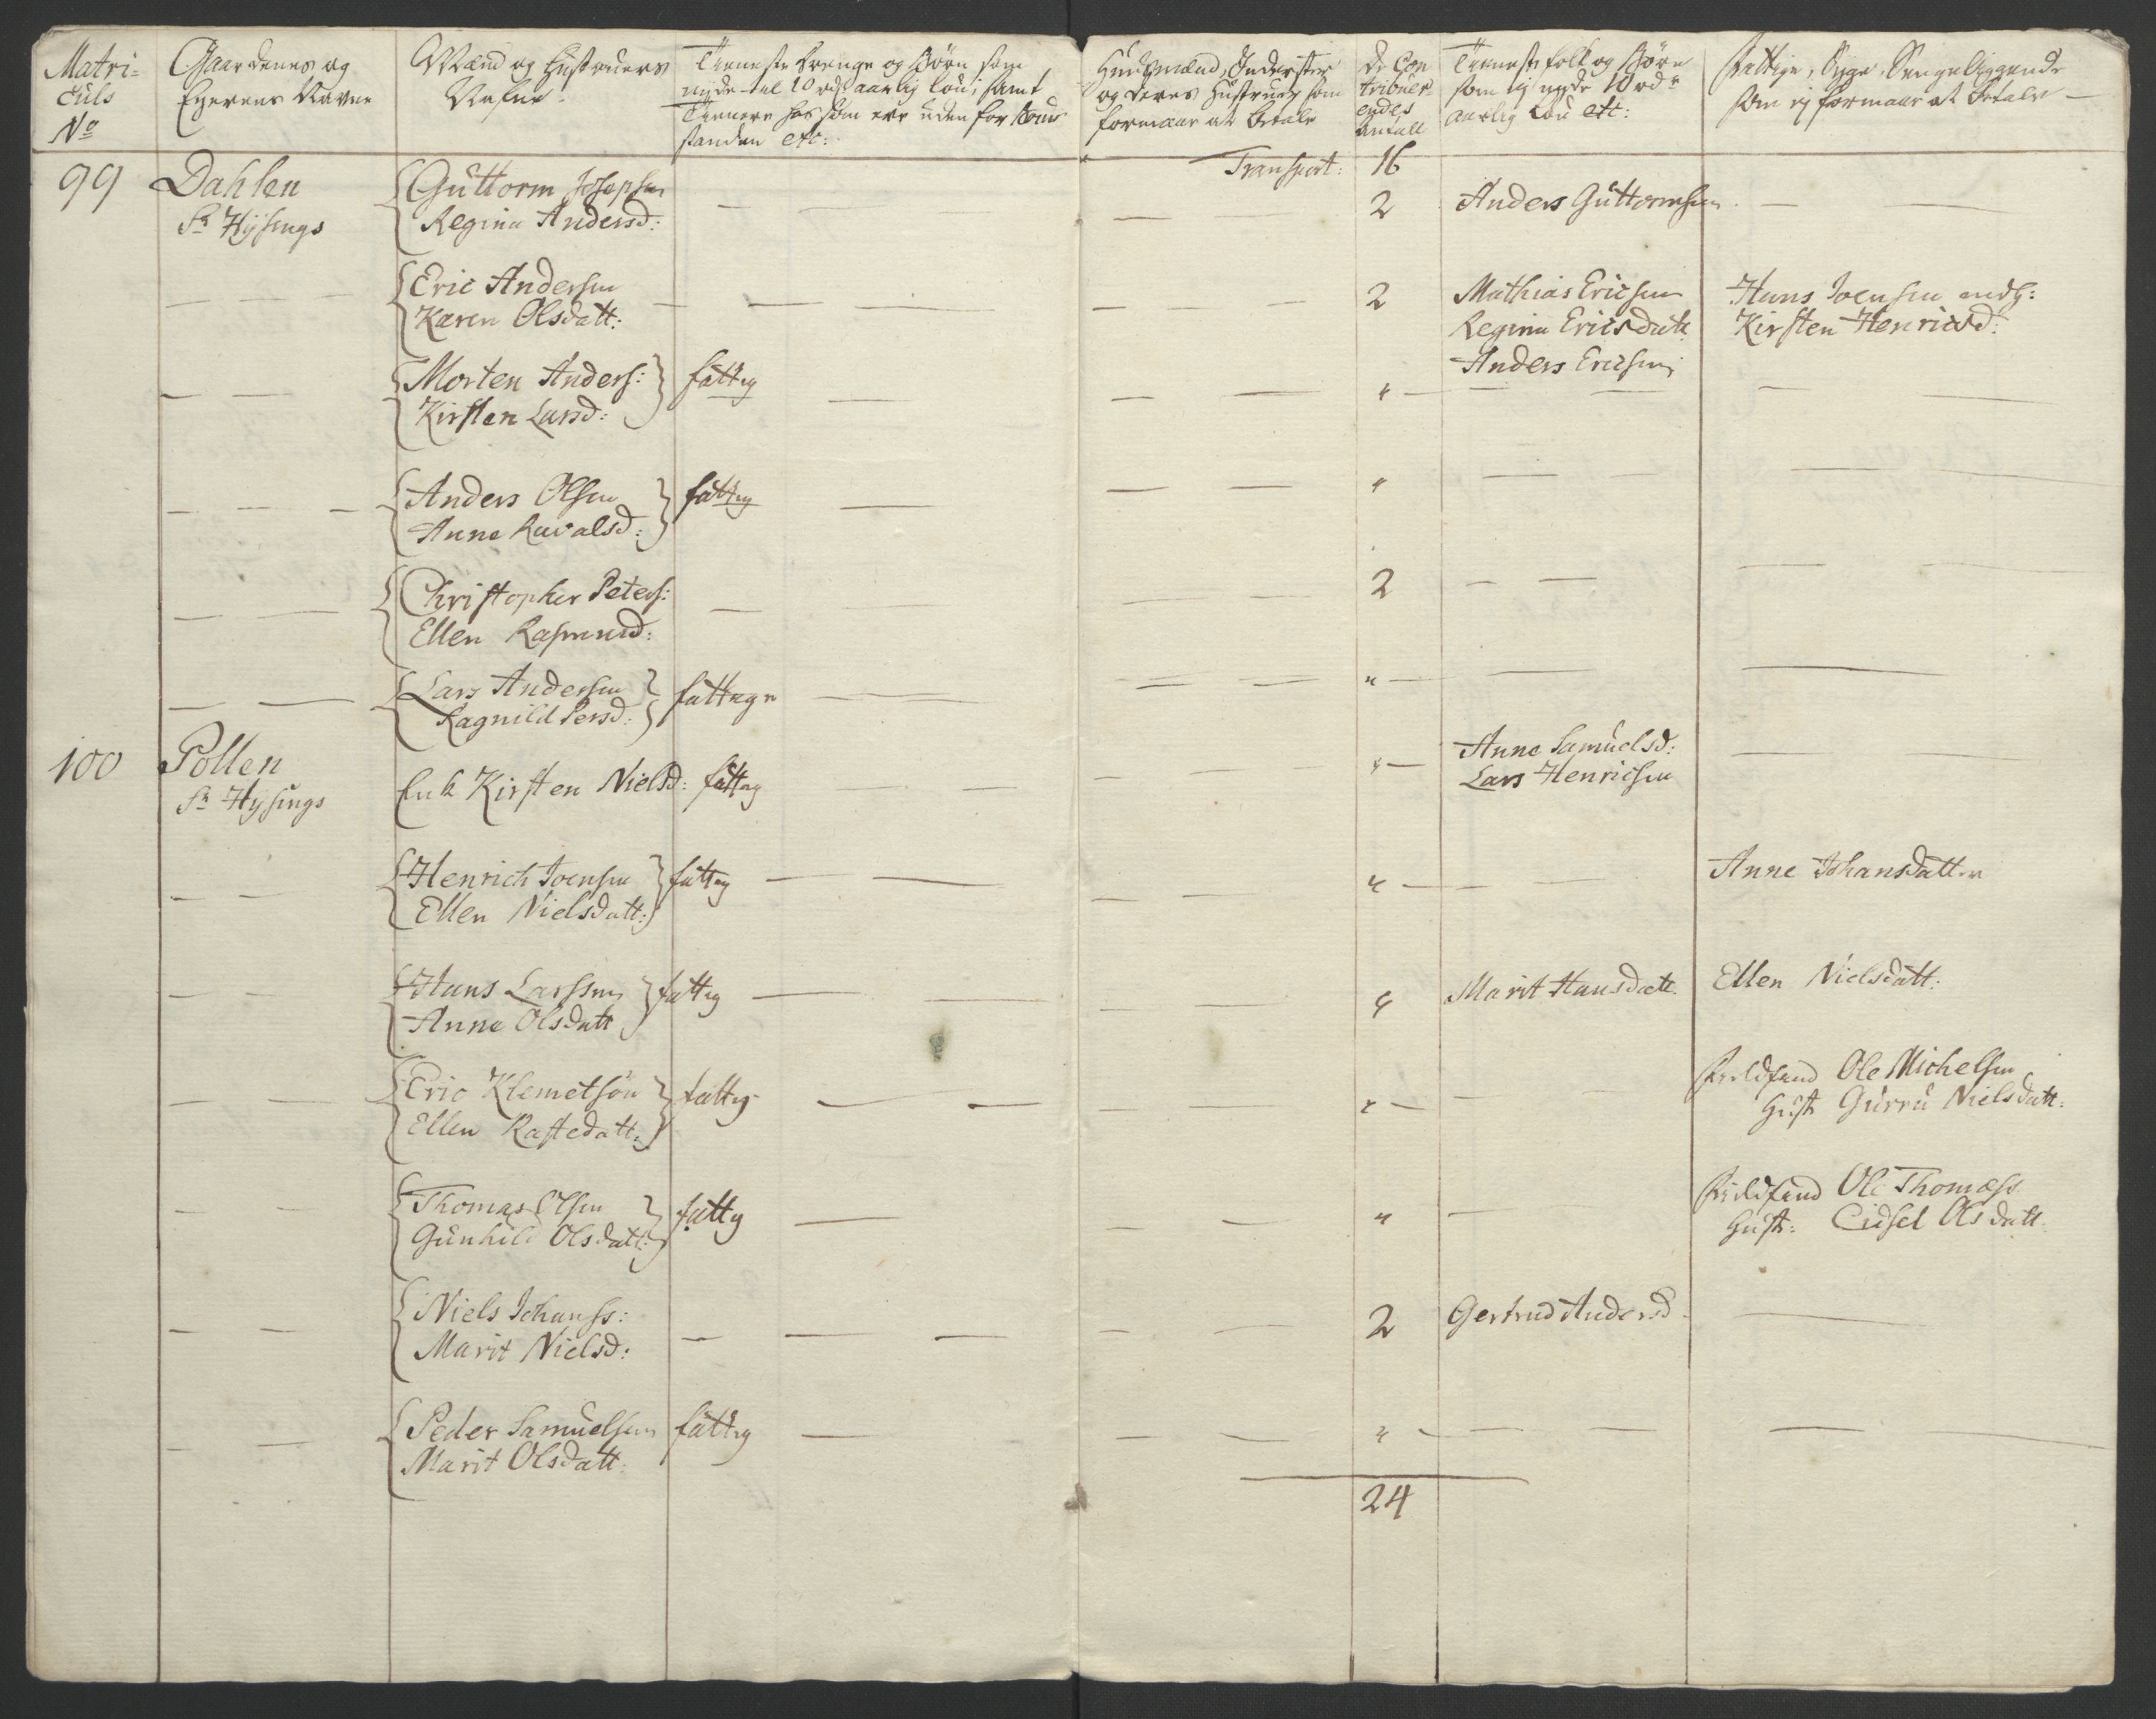 Matri=
culs
No
Gaardenes og
Eyerens Navne
Mænd og Hustruers
Nafne.
Tieneste Drenge og Börn som
nyde til 10 rd aarlig Lön, samt
Tienere hos som ere uden for Bonde
standen etc:
Huusmænd, Inderster
og deres Hustruer som
formaar at betale
De Con
tribuer
endes
Antall
Tieneste folk og Börn
som ej nyde 10 rdr
aarlig Lön etc:
Fattige, Syge, Sengeliggende
som ej formaar at betale
Transport: 16
99 Dahlen
Sr Hysings
Guttorm Josephsen
Regina Andersd:
2 Anders Guttormsen
Eric Andersen
Karen Olsdatt:
2 Mathias Ericsen
Regina Ericsdatt.
Anders Ericsen
Hans Joensen
Kirsten Henricsd:
Morten Anders:
Kirsten Larsd:
fattig
Anders Olsen
Anne
fattig
Christopher Peters:
Ellen Rasmusd:
2
Lars Andersen
Ragnild Persd:
fattige
100 Pollen
Sr Hysings
Enk Kirsten Nielsd: fattig
Anne Samuelsd:
Lars Henricsen
Henrich Joensen
Ellen Nielsdatt:
fattig
Anne Johansdatter
Hans Larssen
Anne Olsdatt
fattig
Marit Hansdatt.
Ellen Nielsdatt:
Eric Klemetsön
Ellen Rastedatt:
fattig
Ole Michelsen
Hust Gurru Nielsdatt:
Thomas Olsen
Gunhild Olsdatt:
fattig
Ole Thomæss
Hust: Cidsel Olsdatt.
Niels Johanss:
Marit Nielsd:
2 Gertrud Andersd:
Peder Samuelsen
Marit Olsdatt:
fattig
24